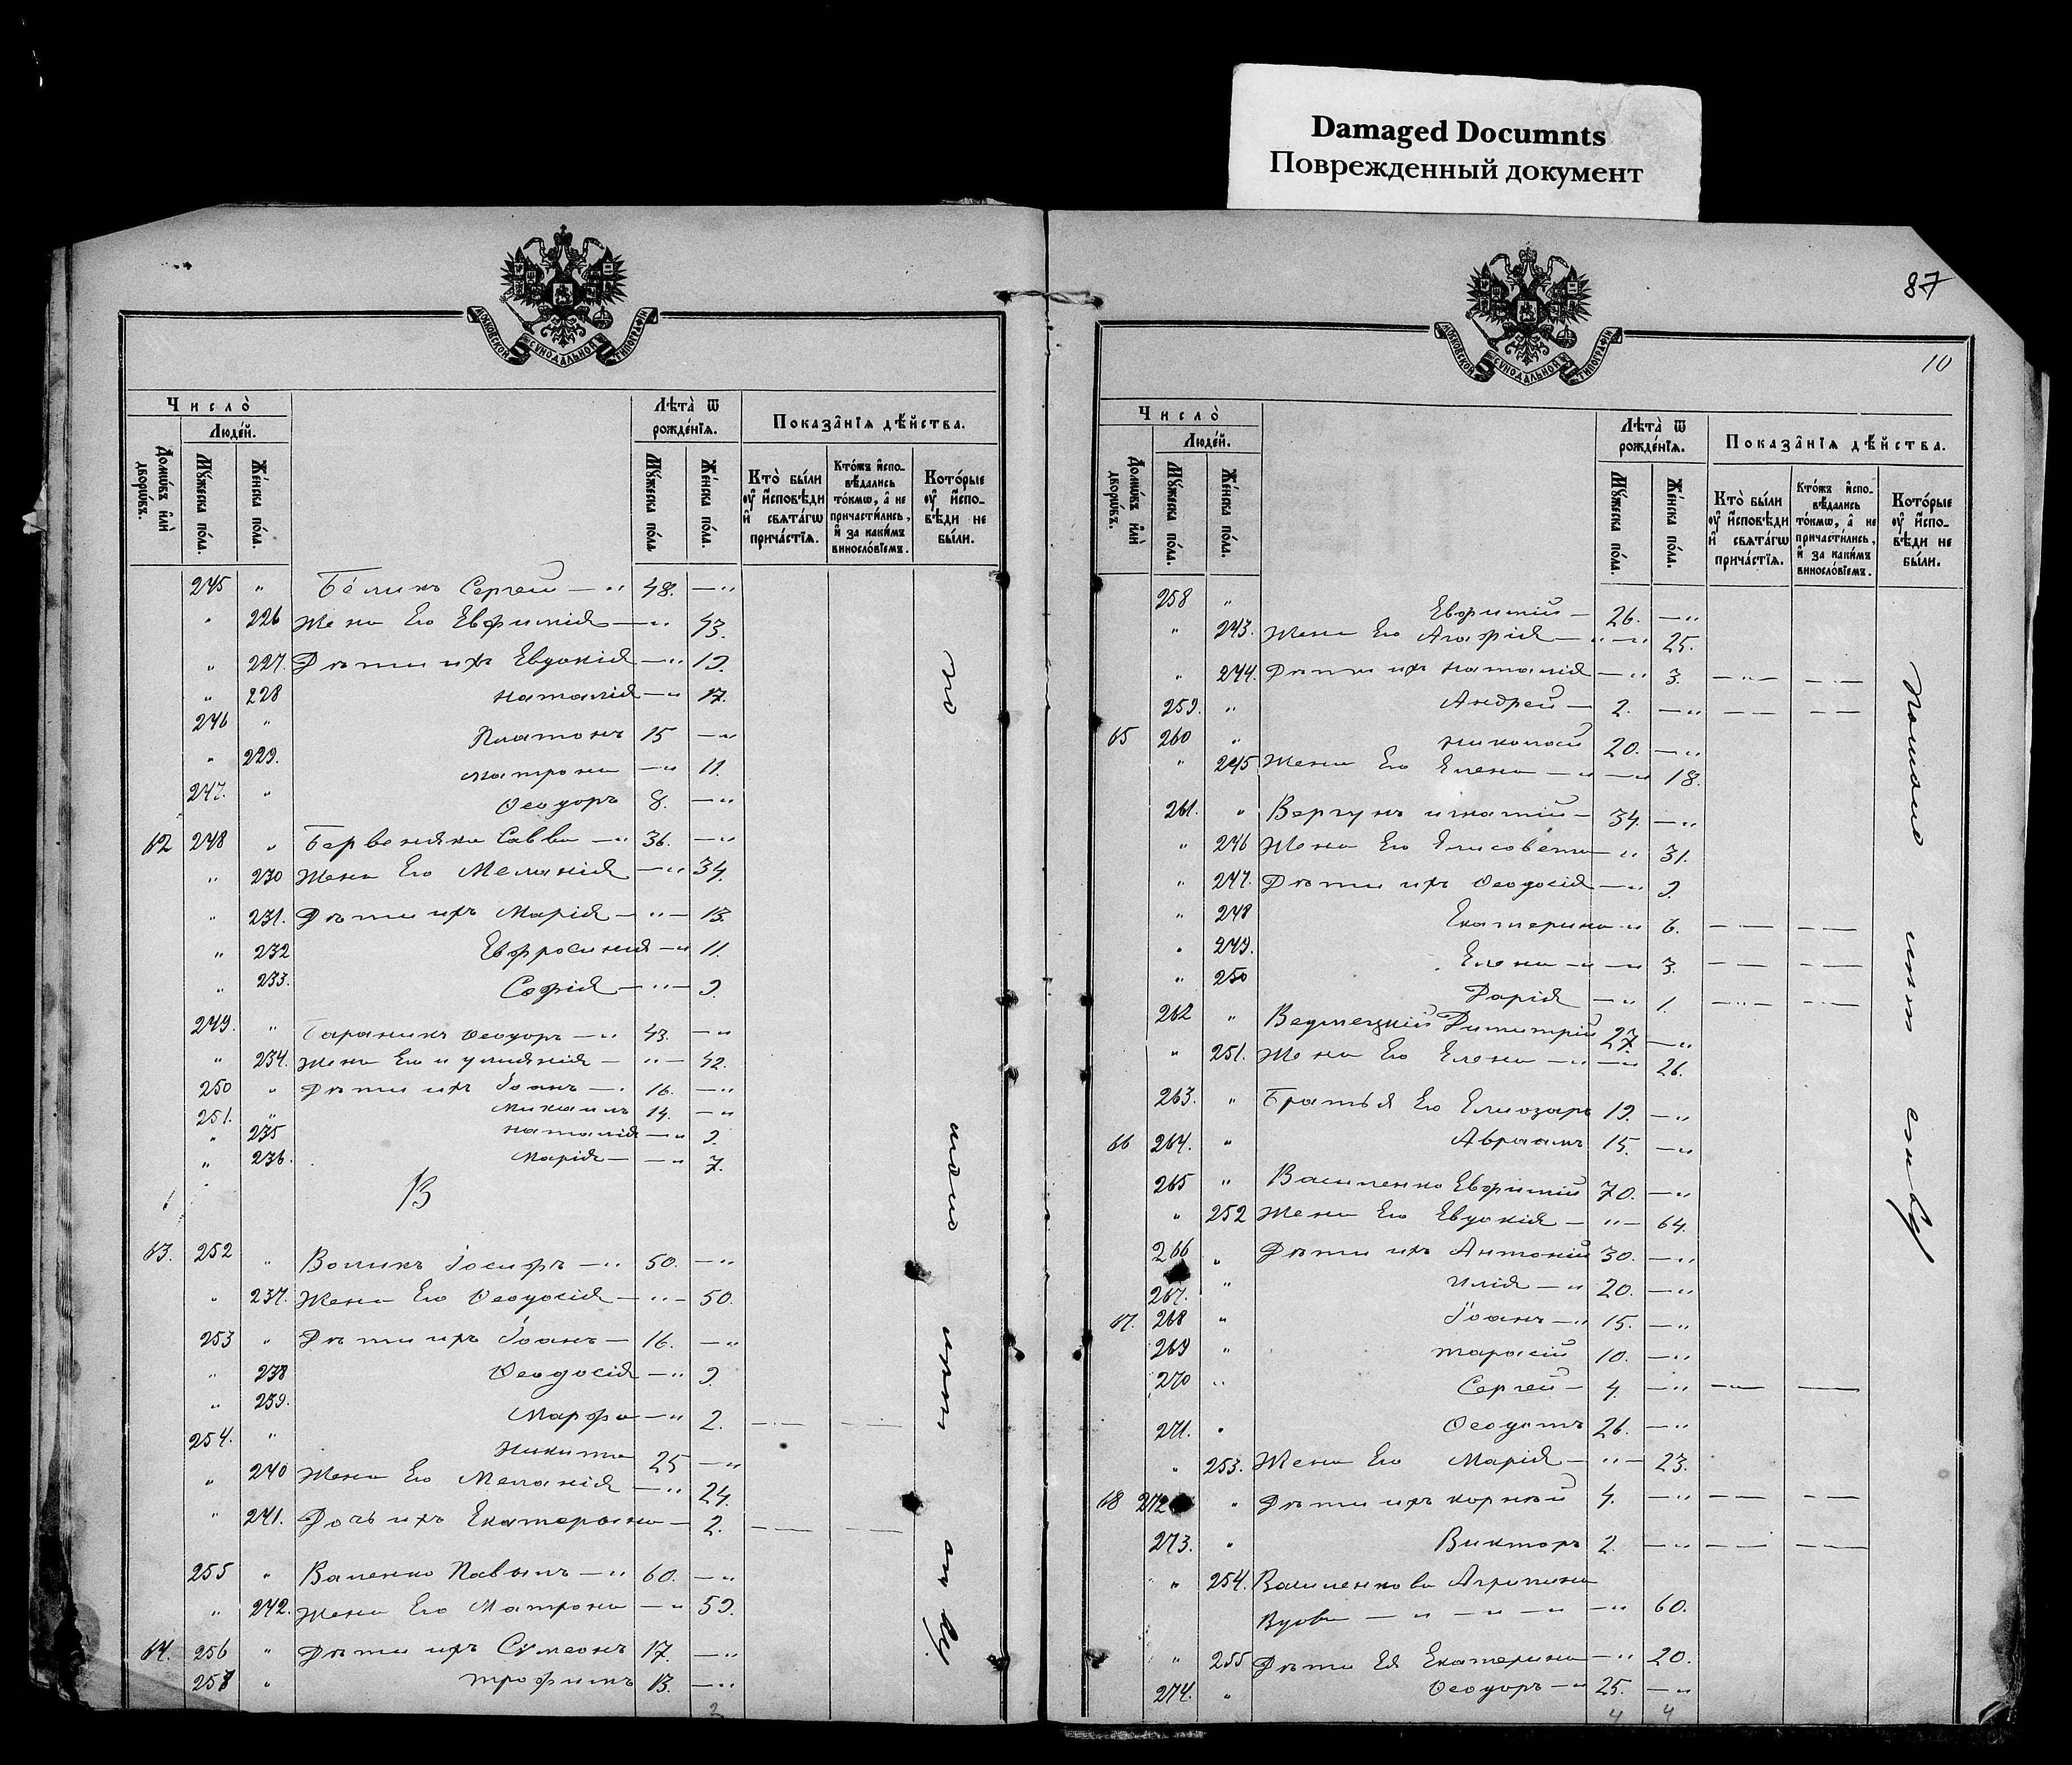 Damaged Documnts
Поврежденный документ
87
10
МОСКОВСКОЙ СѴНОДАЛЬНОЙ ТИПОГРАФІИ
Число̀
Люде́й.
Домѡ́въ и҆лѝ дворѡ́въ.
Мꙋ́жеска по́ла.
Же́нска по́ла.
Лѣ́та ѿ рожде́нїѧ.
Мꙋ́жеска по́ла
Же́нска по́ла.
Показа̑нїѧ дѣ́йства.
Кто̀ бы́ли оу҆ и҆сповѣ́ди и҆ свѧта́гѡ прича́стїѧ.
Кто́жъ и҆сповѣ́дались то́кмѡ, а҆ не причасти́лись, и҆ за каки́мъ винословїемъ.
Кото́рые оу҆ и҆сповѣ́ди не бы́ли.
245 " Бѣликъ Сергей — " 48. — "
" 226 Жена Его Евфимія — " 43.
" 227. Дѣти ихъ Евдокія — " 19.
" 228 Наталія — " 17.
246 " Платонъ 15 — "
" 229. Матрона — " 11.
247. " Ѳеодоръ 8. — "
62 248 " Савва — " 36. — "
" 230 Жена Его Меланія — " 34.
" 231. Дѣти ихъ Марія — " — 13.
" 232 Евфросинія — " 11.
" 233. Софія — " — 9.
249. " Ѳеодоръ — " 43. — "
" 234. Жена Его Іуліанія — " — 42.
250 " Дѣти ихъ Іоанъ — " 16. — "
251. " Михаилъ 14. — "
" 235 Наталія — " 9.
" 236. Марія — — " 7.
В
63. 252 " Воликъ Іосифъ — " 50. — "
" 237. Жена Его Ѳеодосія — " — 50.
253 " Дѣти ихъ Іоанъ — 16. — "
" 238 Ѳеодосія — " 9.
" 239. Марфа — " 2.
254. " Никита 25 — "
" 240 Жена Его Меланія — " 24.
" 241. Дочь ихъ Екатерина — 2.
255 " Павелъ — " 60. — "
" 242. Жена Его Матрона — " 59.
64. 256 " Дѣти ихъ Сѵмеонъ 17. — "
257 " Трофимъ 13. — "
МОСКОВСКОЙ СѴНОДАЛЬНОЙ ТИПОГРАФІИ
Число̀
Люде́й.
Домѡ́въ и҆лѝ дворѡ́въ.
Мꙋ́жеска по́ла.
Же́нска по́ла.
Лѣ́та ѿ рожде́нїѧ.
Мꙋ́жеска по́ла.
Же́нска по́ла.
Показа̑нїѧ дѣ́йства.
Кто̀ бы́ли оу҆ и҆сповѣ́ди и҆ свѧта́гѡ прича́стїѧ.
Кто́жъ и҆сповѣ́дались то́кмѡ, а҆ не причасти́лись, и҆ за каки́мъ винословїемъ.
Кото́рые оу҆ и҆сповѣ́ди не бы́ли.
258 " Евфимій — 26. — "
" 243. Жена Его Агафія — " — " 25.
" 244. Дѣти ихъ Наталія — " 3.
259. " Андрей — 2. — "
65 260 " Николай 20. — "
" 245 Жена Его Елена — " — " 18.
261. " Вергунъ Игнатій — 34. — "
" 246 Жена Его Елисавета — " 31.
" 247. Дѣти ихъ Ѳеодосія — " 9.
" 248 Екатерина — " 6.
" 249. Елена — " — " 3.
" 250 Дарія — " 1.
262 " Димитрій 27. — "
" 251. Жена Его Елена — " — " 26.
263. " Братья Его Елиозаръ 19. — "
66 264. " Авраамъ 15. — "
265 " Василенко Евфимій 70. — "
" 252 Жена Его Евдокія — " — 64.
266 " Дѣти ихъ Антоній 30. — "
267. " Илія — " 20. — "
67. 268 " Іоанъ — " 15. — "
269 " Тарасій 10. — "
270 " Сергей — 4. — "
271. " Ѳеодотъ 26. — "
" 253. Жена Его Марія — " — 23.
68 272 " Дѣти ихъ Корнѣй 4. — "
273. " Викторъ 2. — "
" 254. Василенкова Агрипина
Вдова — " — " — " — " 60.
" 255 Дѣти Ея Екатерина — " 20.
274. " Ѳеодоръ — " 25. — "
4 4